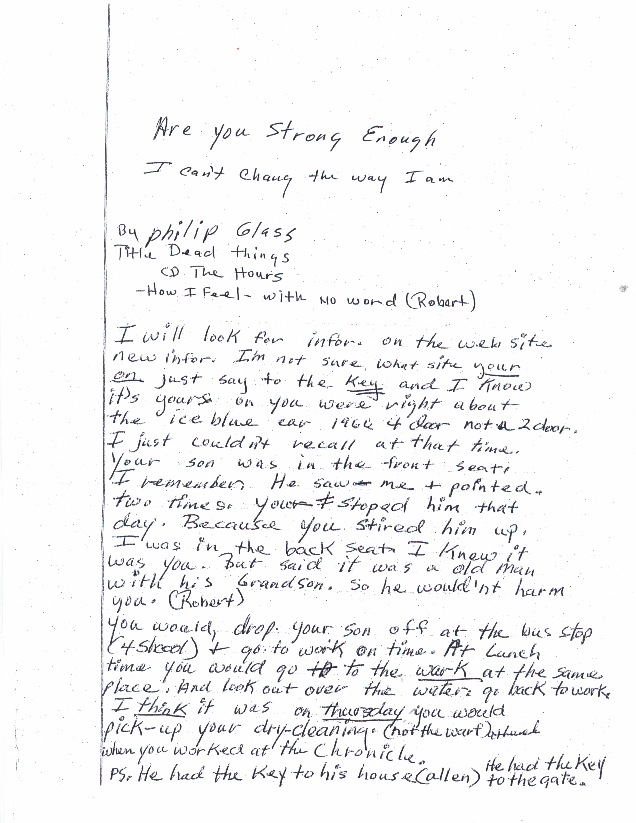 Are you Strong Enough
I can't Chang the way I am
By philip Glass
Title Dead things
CD The Hours
-How I Feel- with no word (Robert)
I will look for infor. on the web site
new infor. I'm not sure what site your
on just say to the Key and I Know
it's yours on you were right about
the ice blue car 1964 4 door not a 2 door.
I just couldn't recall at that time.
Your son was in the front seat,
I remember. He saw me + pointed.
two times. your stoped him that
day. Because you stired him up,
I was in the back seat I Knew it
was you. But said it was a old man
with his Grandson. So he would'nt harm
you. (Robert)
you would, drop your son off at the bus stop
(4 Shool) + go to work on time. At Lunch
time you would go to the wark at the same
place. And look out over the water: go back to work
I think it was on thursday you would
pick-up your dry-cleaning. (not the wart)
when you worked at the Chronicle.
PS. He had the Key to his house (allen) He had the Key
to the gate.